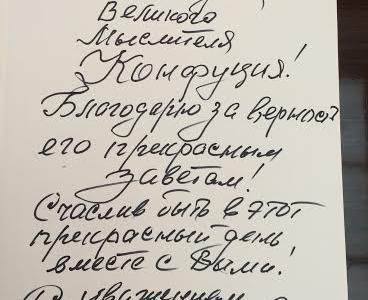 Великого
Мыслителя
Конфуция!
Благодарю за верность
его прекрасным
заветам!
Счаслив быть в этот
прекрасный день
вместе с Вами!
С уважением